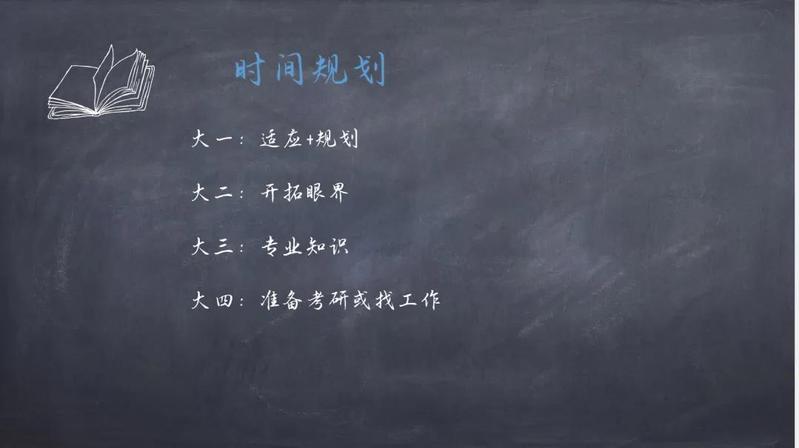 时间规划
大一：适应+规划
大二：开拓眼界
大三：专业知识
大四：准备考研或找工作